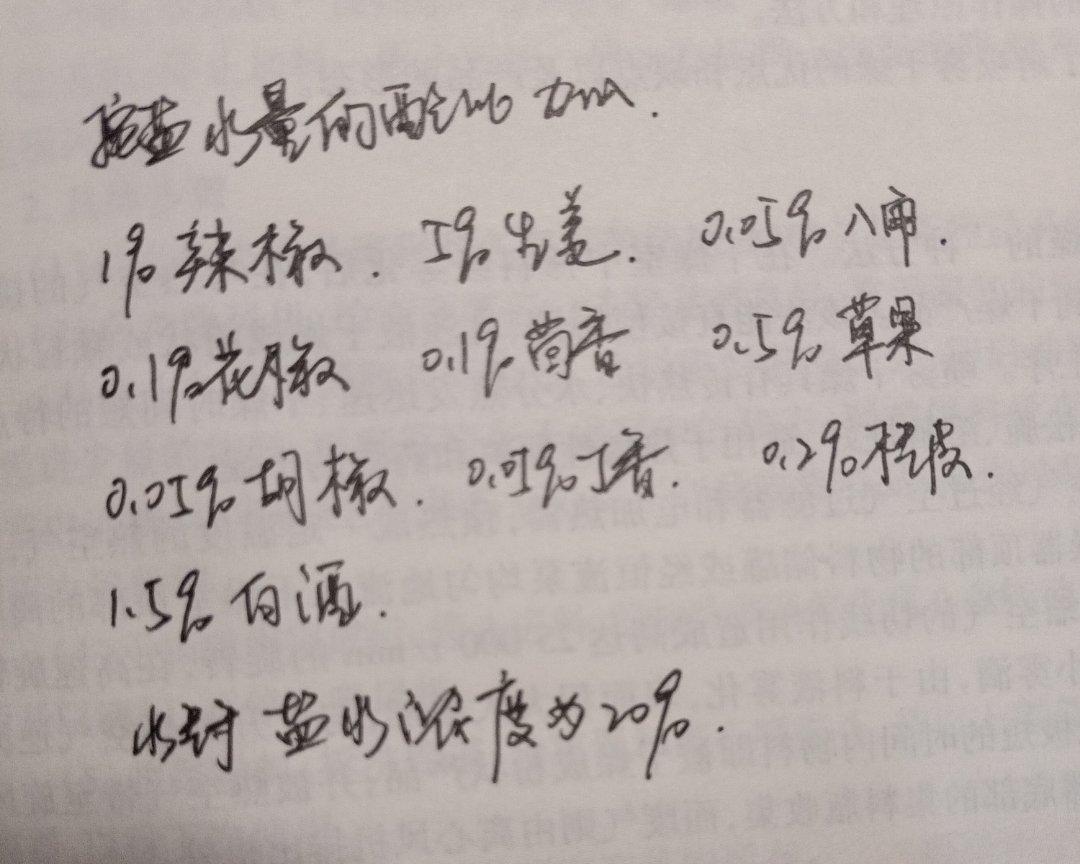 按盐水量的配比加入.
1%辣椒. 5%生姜. 0.05%八角.
0.1%花椒 0.1%茴香 0.5%草果
0.05%胡椒. 0.05%丁香. 0.2%桂皮.
1.5%白酒.
水封盐水浓度为20%.